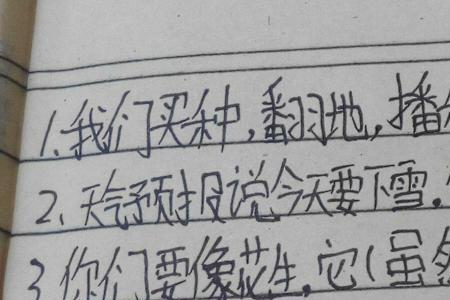 1.我们买种,翻地,播
2.天气预报说今天要下雪.
3.你们要像花生.它(虽然